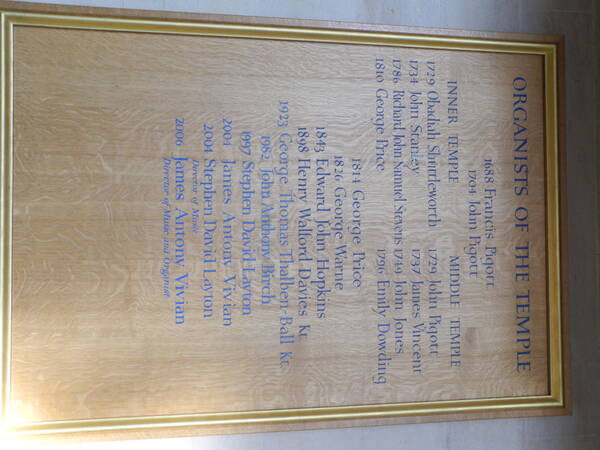 ORGANISTS OF THE TEMPLE
1688 Francis Pigott
1704 John Pigott
INNER TEMPLE
1729 Obadiah Shuttleworth
1734 John Stanley
1786 Richard John Samuel Stevens
1810 George Price
MIDDLE TEMPLE
1729 John Pigott
1737 James Vincent
1749 John Jones
1796 Emily Dowding
1814 George Price
1826 George Warne
1843 Edward John Hopkins
1898 Henry Walford Davies Kt.
1923 George Thomas Thalben-Ball Kt.
1982 John Anthony Birch
1997 Stephen David Layton
2004 James Antony Vivian
2004 Stephen David Layton
Director of Music
2006 James Antony Vivian
Director of Music and Organist